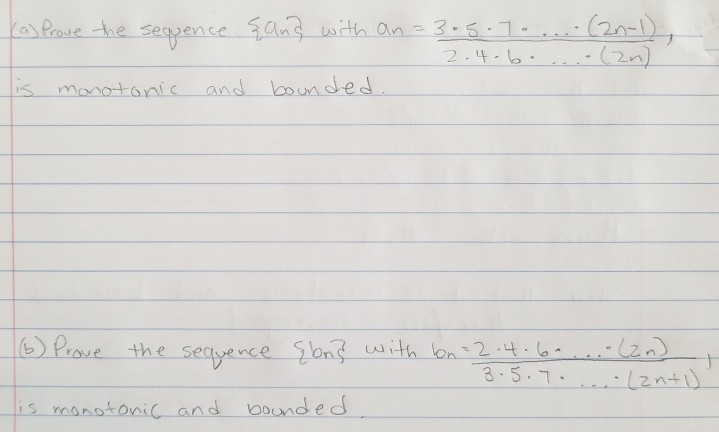 (a) Prove the sequence {an} with an = 3·5·7·....·(2n-1),
2·4·6·....·(2n)
is monotonic and bounded.
(b) Prove the sequence {bn} with bn = 2·4·6·....·(2n),
3·5·7·....·(2n+1)
is monotonic and bounded.